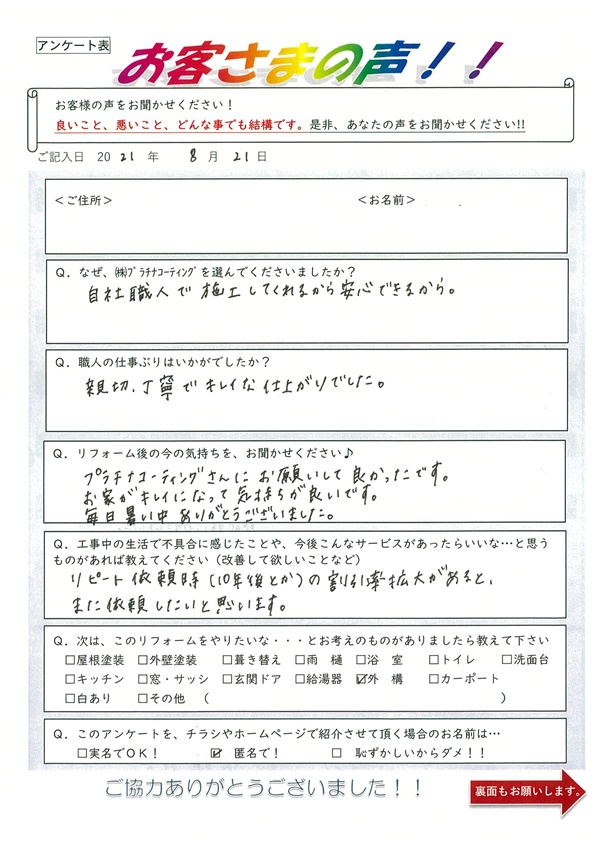 アンケート表
お客さまの声！！
お客様の声をお聞かせください！
良いこと、悪いこと、どんな事でも結構です。是非、あなたの声をお聞かせください!!
ご記入日 2021年 8月21日
＜ご住所＞ ＜お名前＞
Q．なぜ、㈱ﾌﾟﾗﾁﾅｺｰﾃｨﾝｸﾞを選んでくださいましたか？
自社職人で施工してくれるから安心できるから。
Q．職人の仕事ぶりはいかがでしたか？
親切、丁寧でキレイな仕上がりでした。
Q．リフォーム後の今の気持ちを、お聞かせください♪
プラチナコーティングさんにお願いして良かったです。
お家がキレイになって気持ちが良いです。
毎日暑い中ありがとうございました。
Q．工事中の生活で不具合に感じたことや、今後こんなサービスがあったらいいな…と思う
ものがあれば教えてください（改善して欲しいことなど）
リピート依頼時（10年後とか）の割引率拡大があると、
また依頼したいと思います。
Q．次は、このリフォームをやりたいな・・・とお考えのものがありましたら教えて下さい
□屋根塗装 □外壁塗装 □葺き替え □雨 樋 □浴 室 □トイレ □洗面台
□キッチン □窓・サッシ □玄関ドア □給湯器 ☑外 構 □カーポート
□白あり □その他 （ ）
Q．このアンケートを、チラシやホームページで紹介させて頂く場合のお名前は…
□実名でOK！ ☑ 匿名で！ □ 恥ずかしいからダメ！！
ご協力ありがとうございました！！
裏面もお願いします。